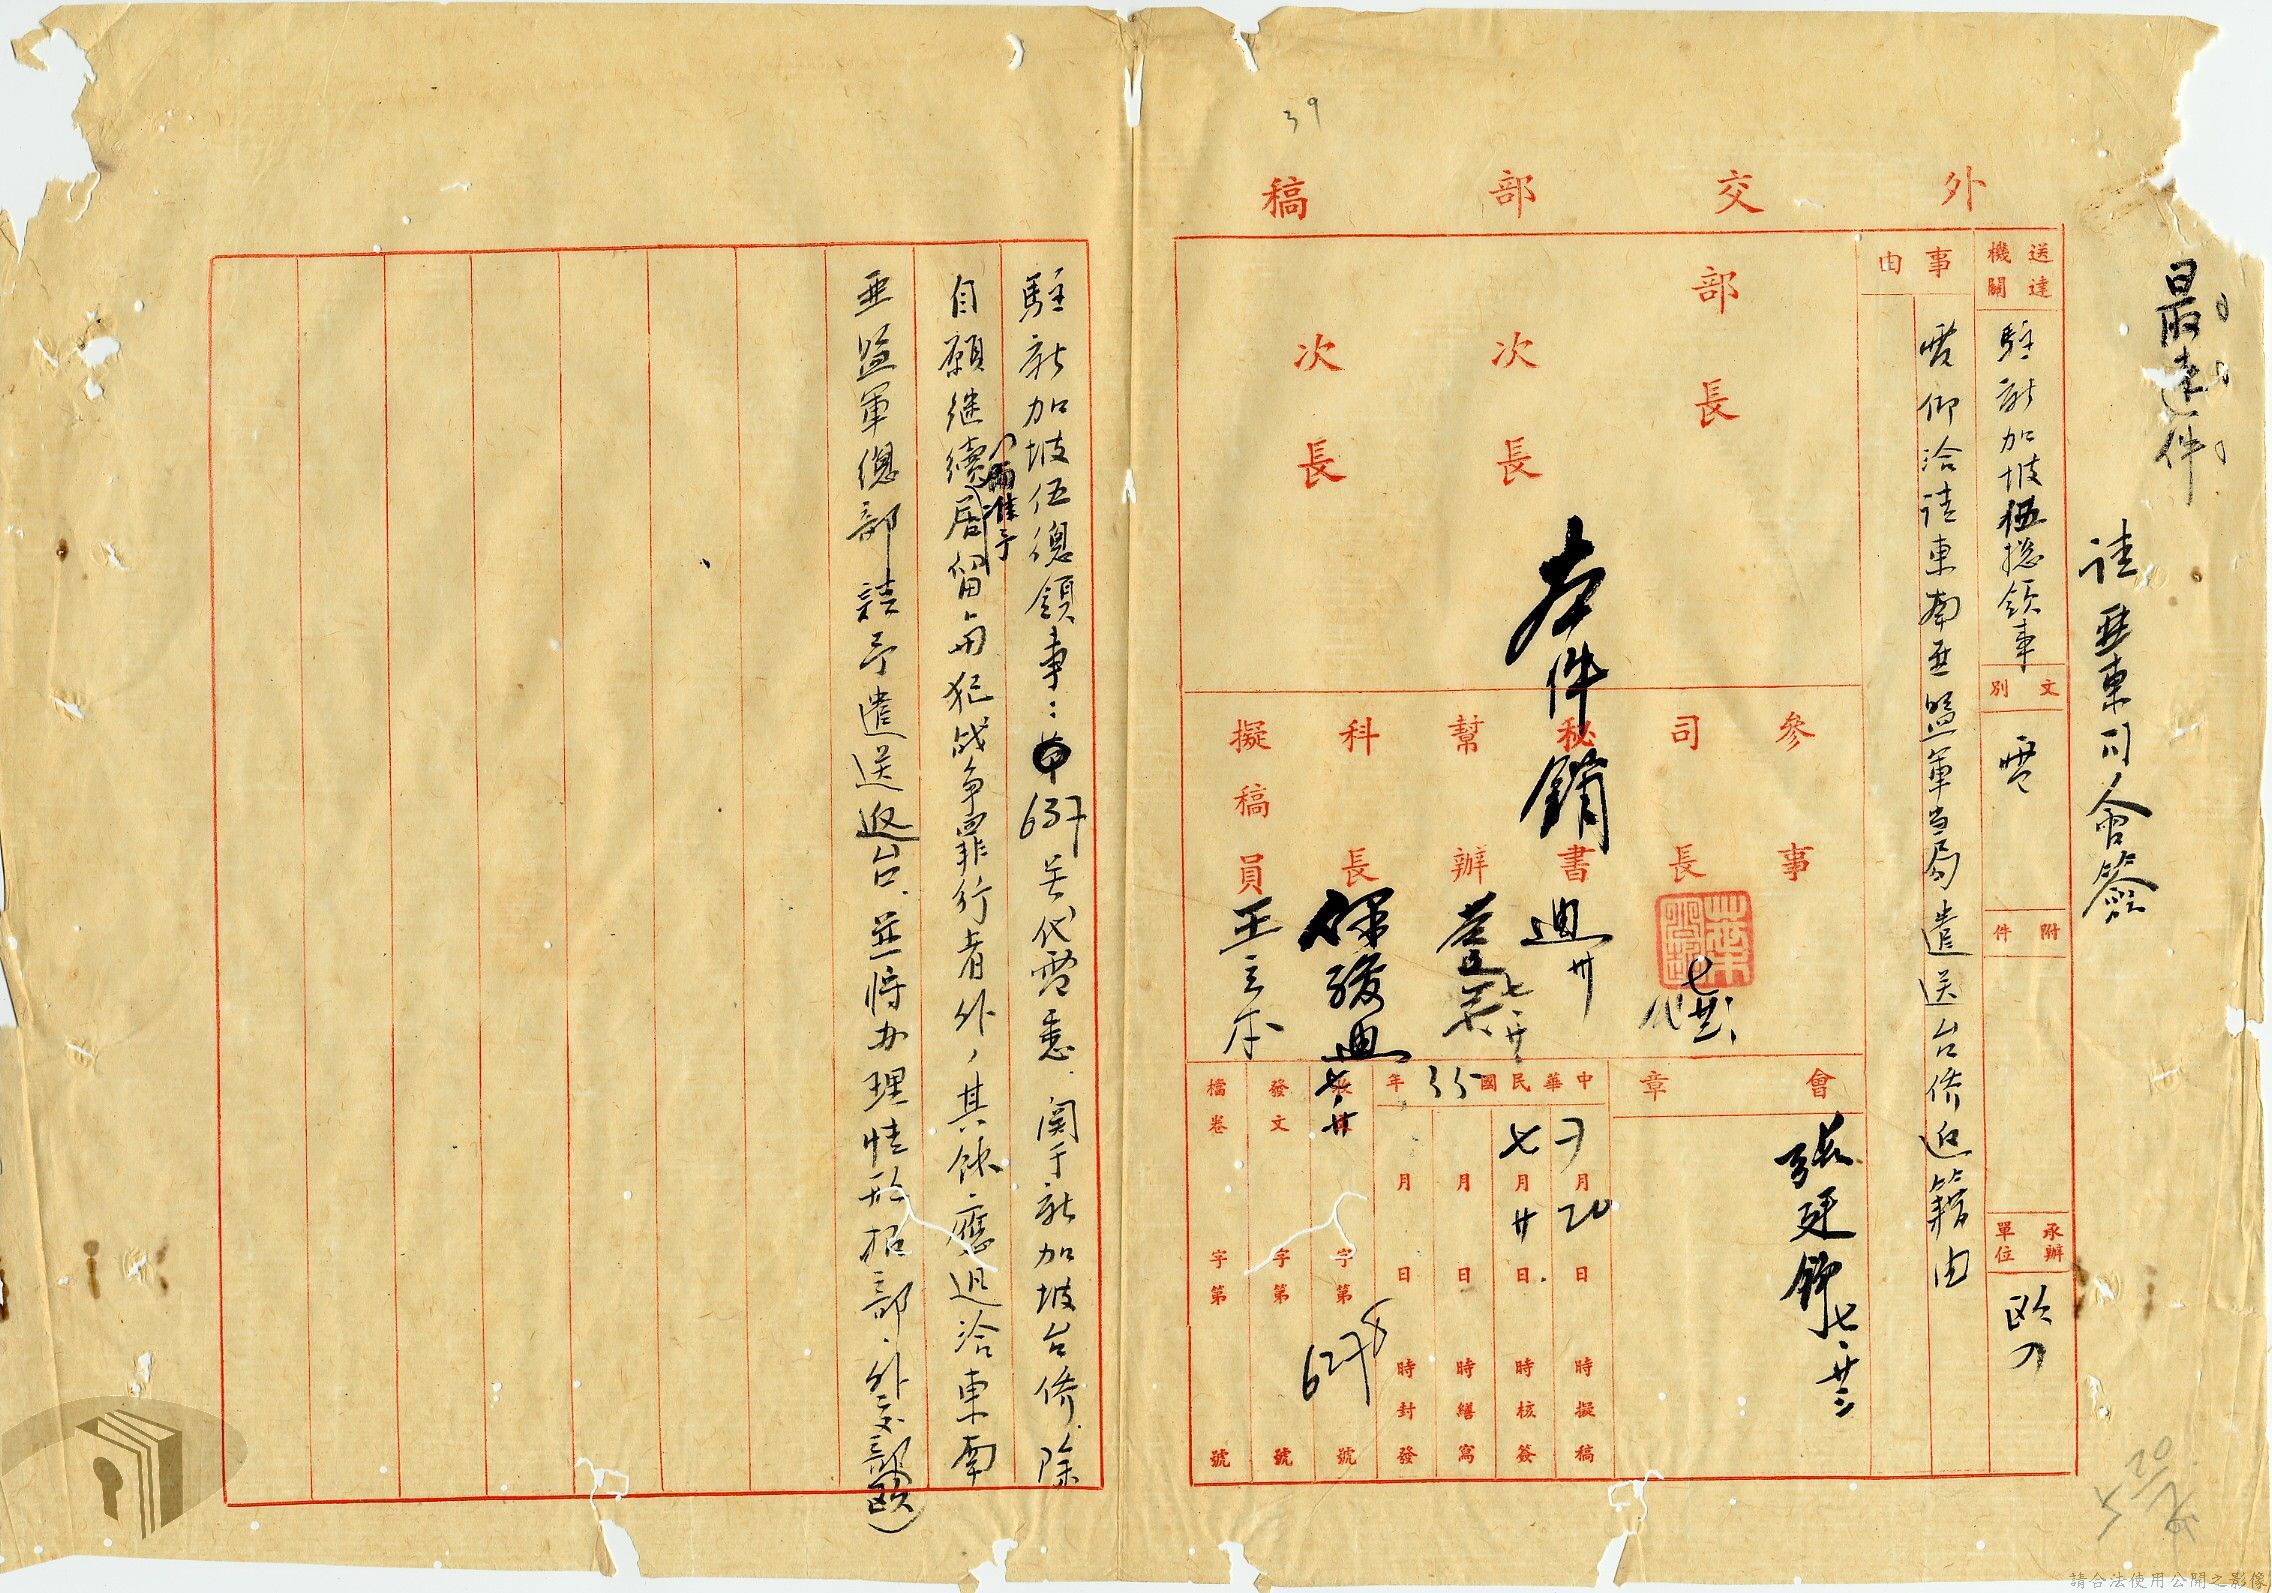 39
外交部稿
最速件
請亞東司會簽
送達機關
駐新加坡伍總領事
文別
電
附件
承辦單位
歐
事由
電仰洽請東南亞盟軍當局遣送台僑返籍由
部長
次長
次長
本件銷
參事
司長
秘書
幫辦
科長
擬稿員
王
會章
七
中華民國35年
7月20日 時擬稿
七月廿日 時核簽
月 日 時繕寫
月 日 時封發
字第 627 號
發文 字第 號
檔卷 字第 號
駐新加坡伍總領事：637號代電悉．關于新加坡台僑．除
自願繼續居留
而准予
與犯战争罪行者外，其餘應迅洽東南
亞盟軍總部請予遣送返台．並將办理情形报部．外交部(歐)
請合法使用公開之影像